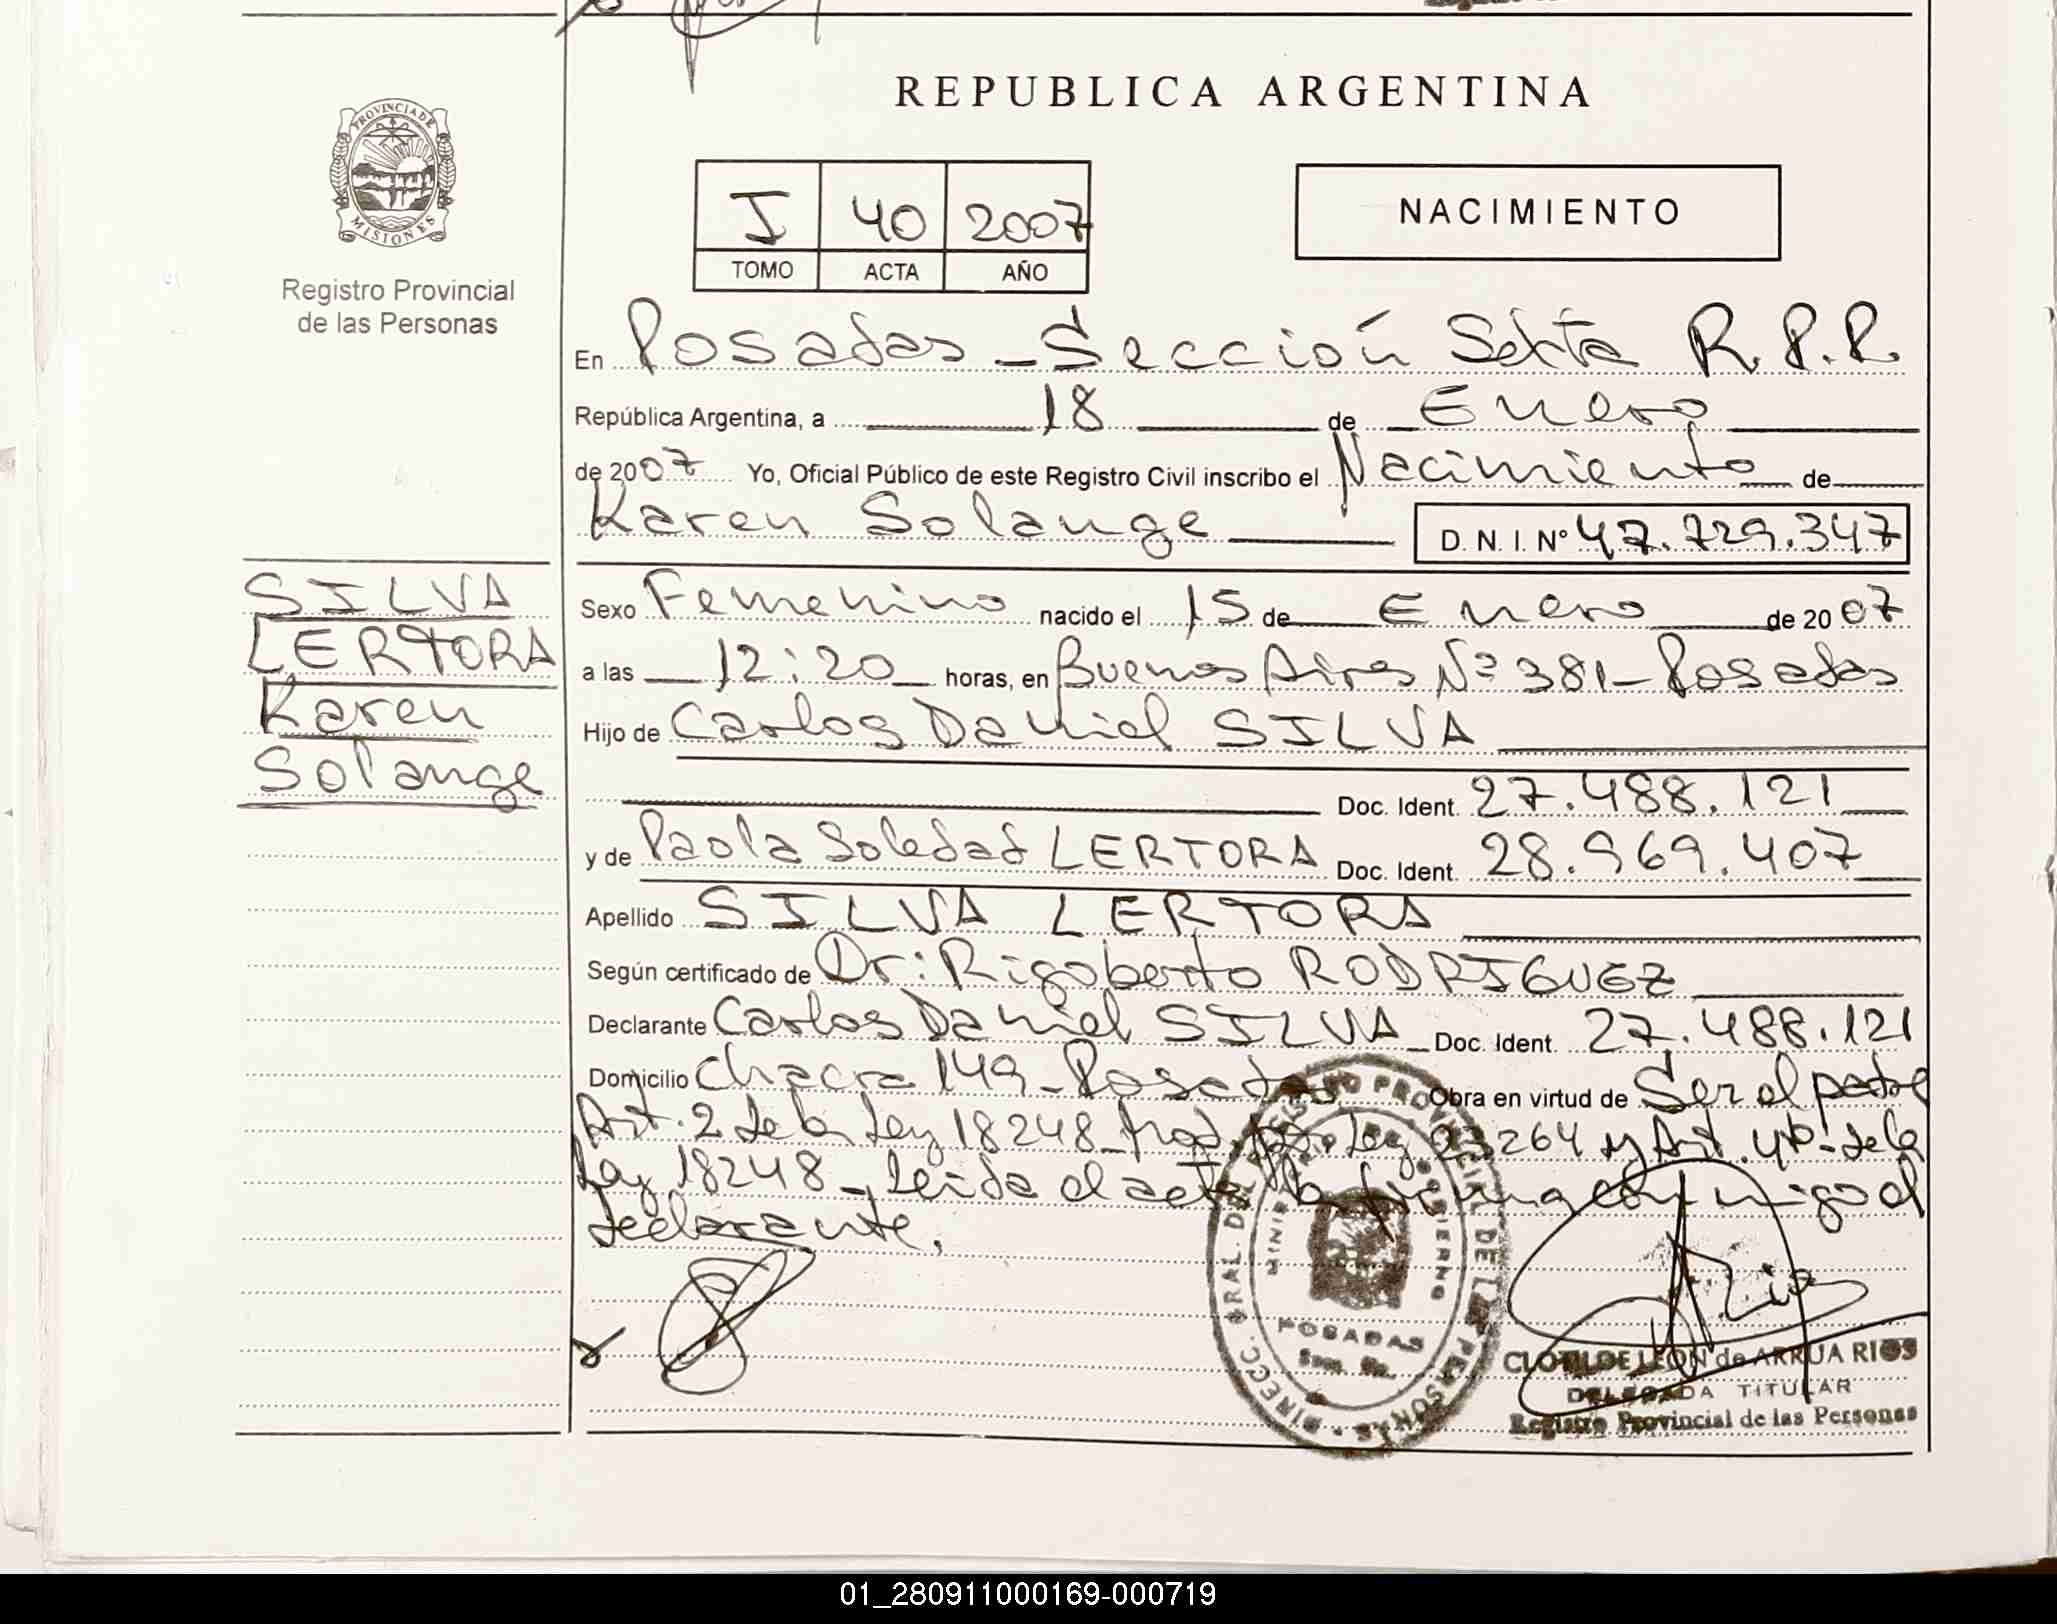 REPUBLICA ARGENTINA
PROVINCIA DE
MISIONES
Registro Provincial
de las Personas
I 40 2007
TOMO ACTA AÑO
NACIMIENTO
En Posadas - Sección Sexta R.P.P.
República Argentina, a 18 de Enero
de 2007 Yo, Oficial Público de este Registro Civil inscribo el Nacimiento de
Karen Solange D. N. I. Nº 47.729.347
SILVA
LERTORA
Karen
Solange
Sexo Femenino nacido el 15 de Enero de 2007
a las 12:20 horas, en Buenos Aires Nº 381 - Posadas
Hijo de Carlos Daniel SILVA
Doc. Ident. 27.488.121
y de Paola Soledad LERTORA Doc. Ident. 28.969.407
Apellido SILVA LERTORA
Según certificado de Dr: Rigoberto RODRIGUEZ
Declarante Carlos Daniel SILVA Doc. Ident. 27.488.121
Domicilio Chacra 149 - Posadas Obra en virtud de Ser el padre
Art. 2 de la Ley 18248 - mod. por Ley 23264 y Art. 4to. de la
Ley 18248 - Leída el acta la firma conmigo el
declarante.
DIRECC. GRAL. DEL REGISTRO PROVINCIAL DE LAS PERSONAS
MINISTERIO DE GOBIERNO
POSADAS
CLOTILDE LEON de ARRUA RIOS
DELEGADA TITULAR
Registro Provincial de las Personas
01_280911000169-000719